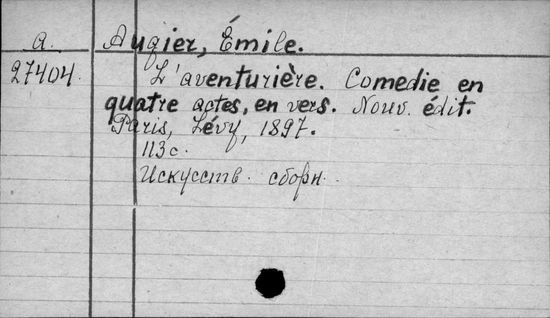 a. Augier, Émile.
27404. L'aventurière. Comedie en
quatre actes, en vers. Nouv. édit.
Paris, Lévy, 1897.
113 с.
Искусств. сборн.